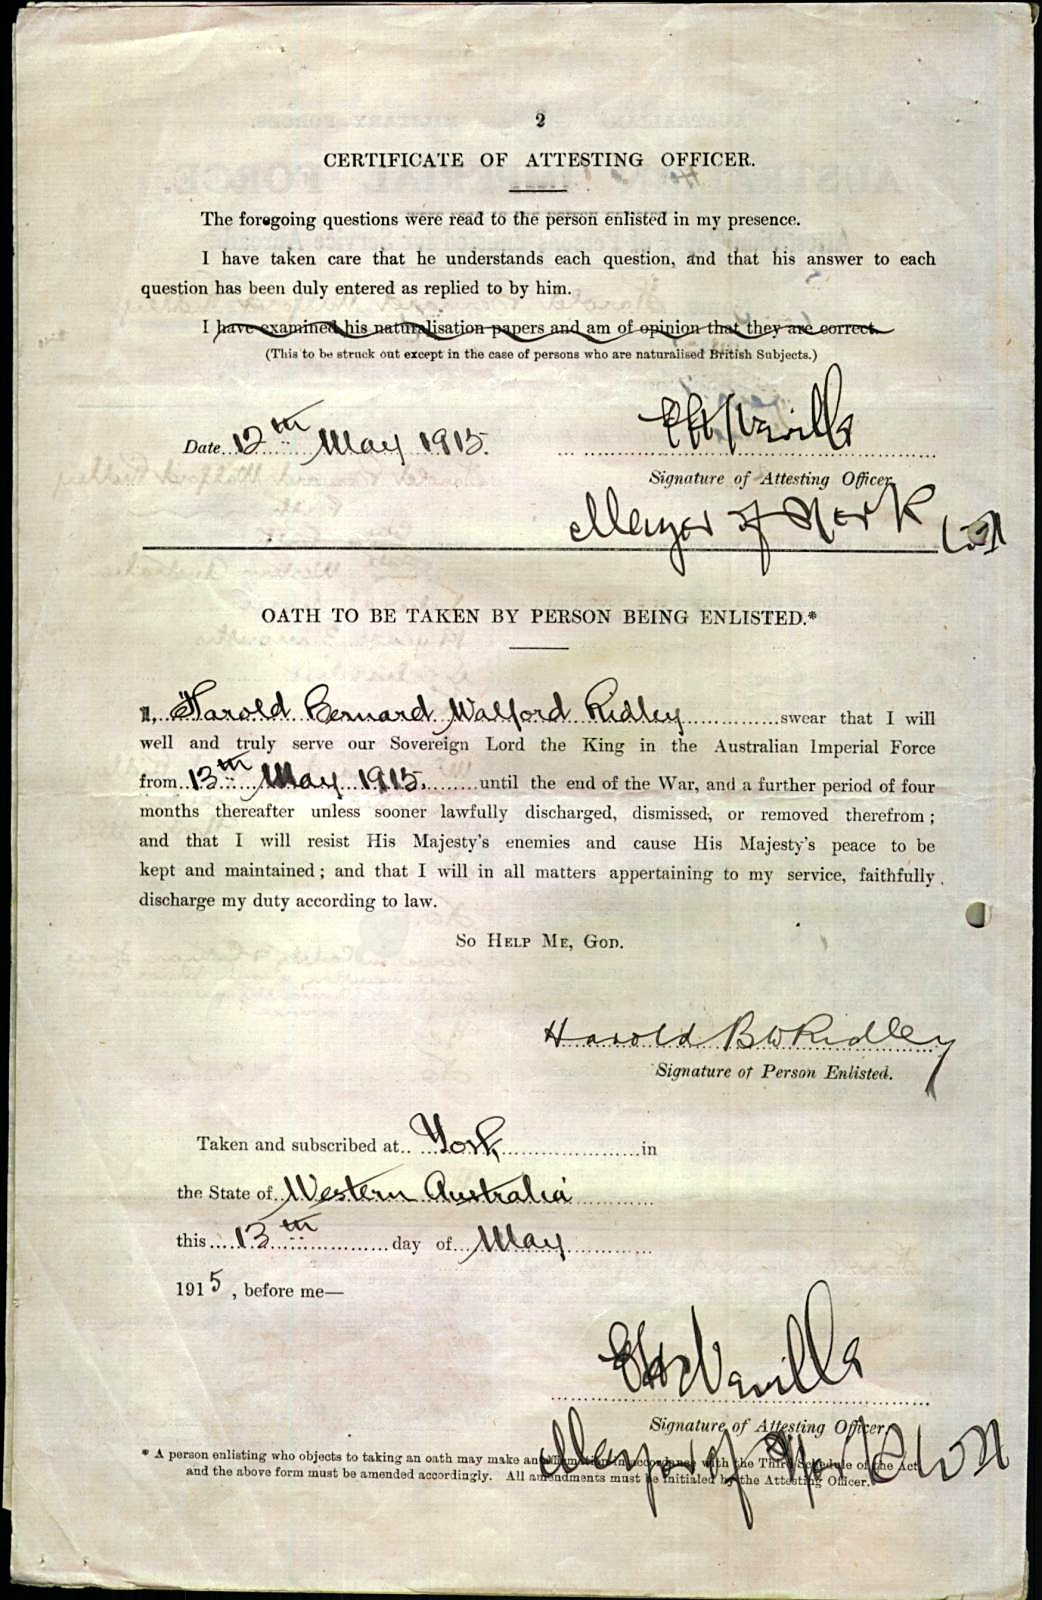 2
CERTIFICATE OF ATTESTING OFFICER.
The foregoing questions were read to the person enlisted in my presence.
I have taken care that he understands each question, and that his answer to each
question has been duly entered as replied to by him.
I have examined his naturalisation papers and am of opinion that they are correct.
(This to be struck out except in the case of persons who are naturalised British Subjects.)
Date 12th May 1915. E H Neville
Signature of Attesting Officer.
Mayor of York WA
OATH TO BE TAKEN BY PERSON BEING ENLISTED.*
I, Harold Bernard Walford Ridley swear that I will
well and truly serve our Sovereign Lord the King in the Australian Imperial Force
from 13th May 1915. until the end of the War, and a further period of four
months thereafter unless sooner lawfully discharged, dismissed, or removed therefrom;
and that I will resist His Majesty's enemies and cause His Majesty's peace to be
kept and maintained; and that I will in all matters appertaining to my service, faithfully
discharge my duty according to law.
So Help Me, God.
Harold B W Ridley
Signature of Person Enlisted.
Taken and subscribed at York in
the State of Western Australia
this 13th day of May
1915, before me—
E H Neville
Signature of Attesting Officer.
Mayor of York WA
* A person enlisting who objects to taking an oath may make an affirmation in accordance with the Third Schedule of the Act
and the above form must be amended accordingly. All amendments must be initialed by the Attesting Officer.